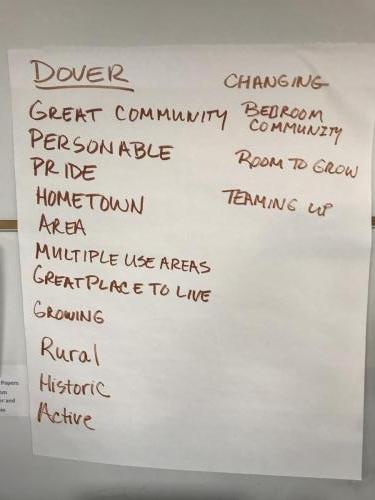 DOVER
GREAT COMMUNITY
PERSONABLE
PRIDE
HOMETOWN
AREA
MULTIPLE USE AREAS
GREAT PLACE TO LIVE
GROWING
Rural
Historic
Active
CHANGING
BEDROOM
COMMUNITY
ROOM TO GROW
TEAMING UP
Papers